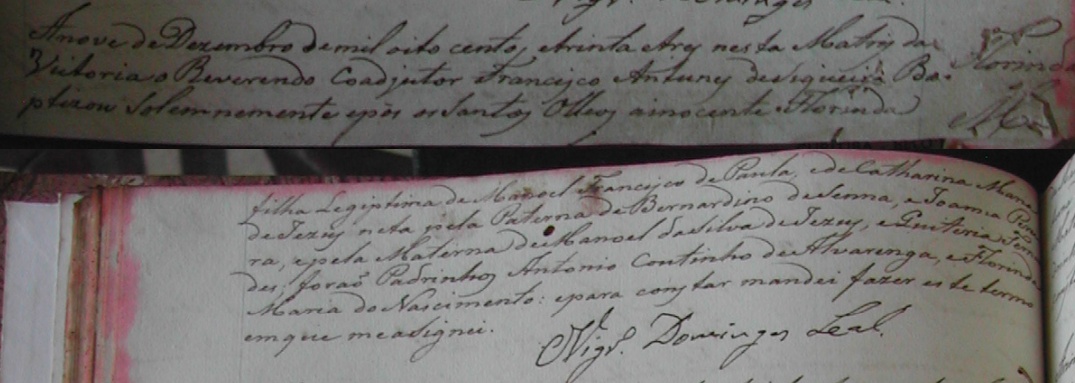 Vigr.º Domingos Leal.
Anove de Dezembro demil oito centos etrinta etres nesta Matriz da
Victoria o Reverendo Coadjutor Francisco Antunes deSiqueira Ba-
ptizou Solemnemente epôs os Santos Olleos ainocente Florinda
Florinda
filha Legiptima de Manoel Francisco de Paula, e de Catharina Maria
de Jezus neta pela Paterna de Bernardino de Senna, e Joanna Perei
ra, epela Materna de Manoel da Silva de Jezus, e Quiteria Fernan
des, forão Padrinhos Antonio Coutinho de Alvarenga, e Florinda
Maria do Nascimento: epara constar mandei fazer este termo
emque measignei.
Vigr.º Domingos Leal.